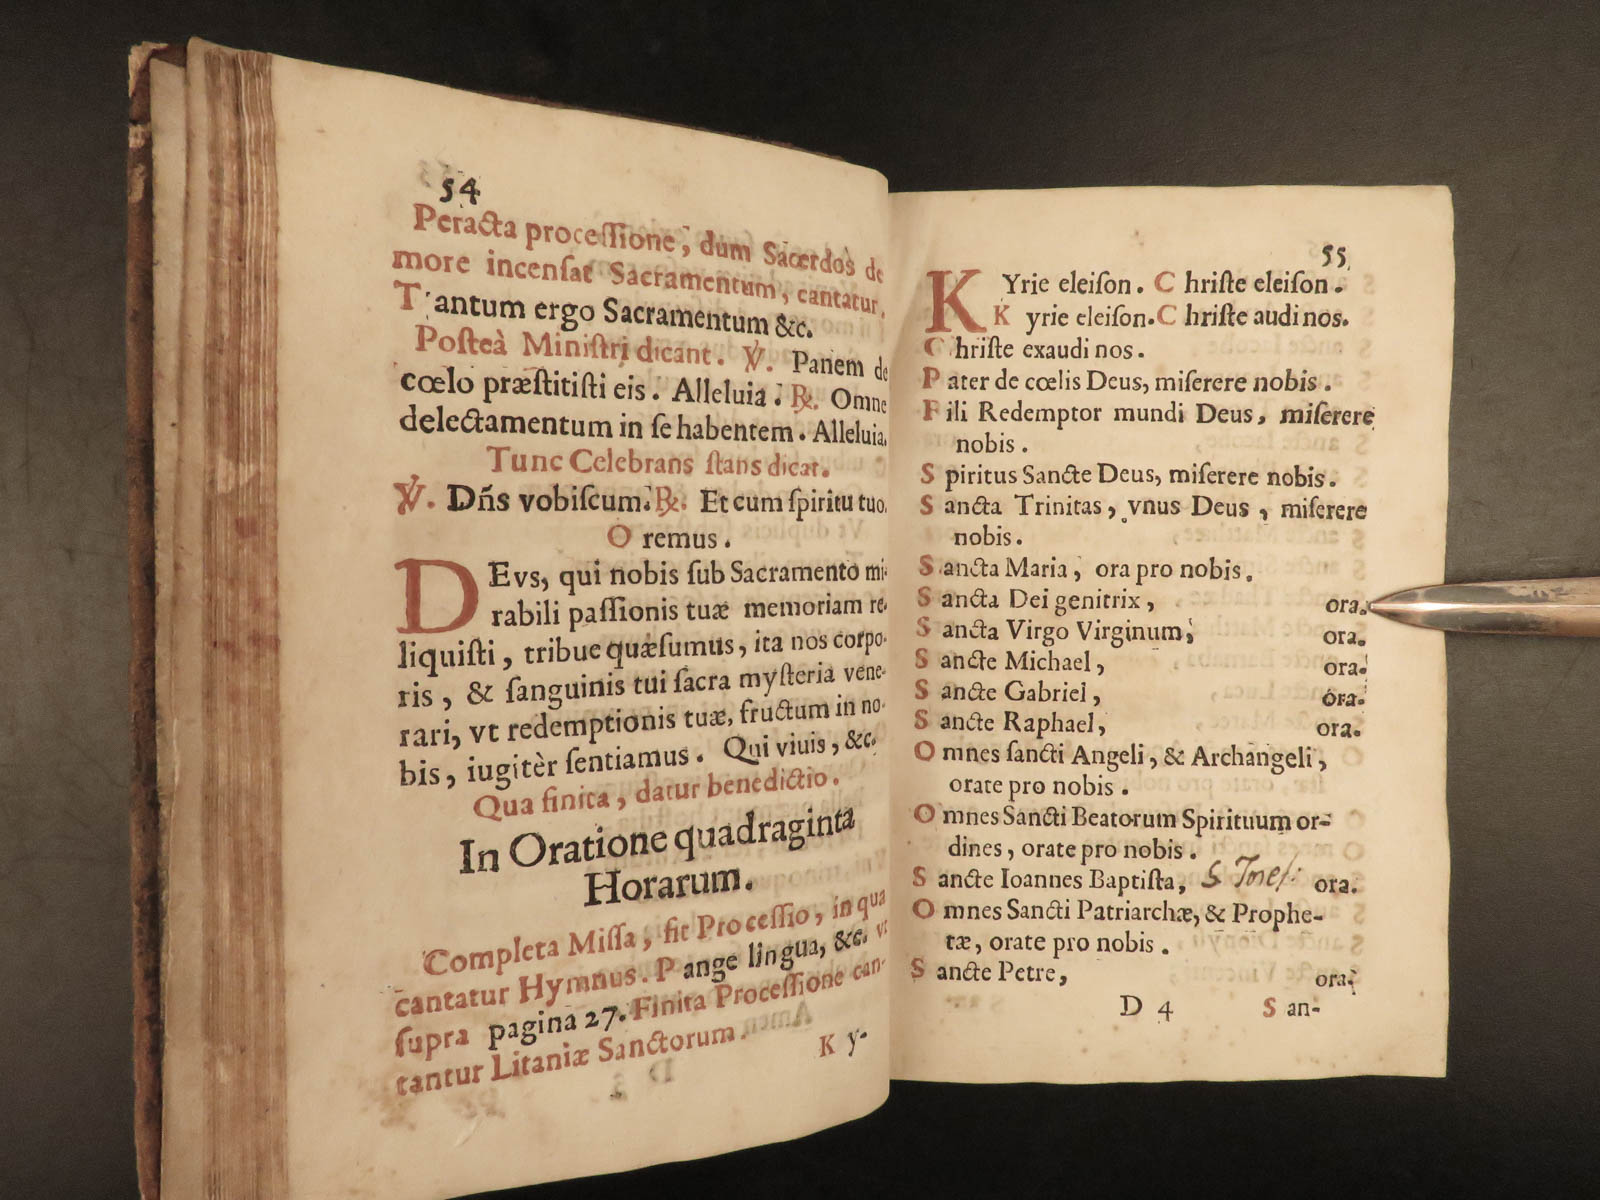 54
Peracta processione, dum Sacerdos de
more incensat Sacramentum, cantatur.
Tantum ergo Sacramentum &c.
Posteà Ministri dicant. ℣. Panem de
cœlo præstitisti eis. Alleluia. ℟. Omne
delectamentum in se habentem. Alleluia.
Tunc Celebrans stans dicat.
℣. Dñs vobiscum. ℟. Et cum spiritu tuo.
Oremus.
DEvs, qui nobis sub Sacramento mi-
rabili passionis tuæ memoriam re-
liquisti, tribue quæsumus, ita nos corpo-
ris, & sanguinis tui sacra mysteria vene-
rari, vt redemptionis tuæ, fructum in no-
bis, iugitèr sentiamus. Qui viuis, &c.
Qua finita, datur benedictio.
In Oratione quadraginta
Horarum.
Completa Missa, fit Processio, in qua
cantatur Hymnus. Pange lingua, &c. vt
supra pagina 27. Finita Processione can-
tantur Litaniæ Sanctorum.
Ky-
55
KYrie eleison. Christe eleison.
Kyrie eleison. Christe audi nos.
Christe exaudi nos.
Pater de cœlis Deus, miserere nobis.
Fili Redemptor mundi Deus, miserere
nobis.
Spiritus Sancte Deus, miserere nobis.
Sancta Trinitas, vnus Deus, miserere
nobis.
Sancta Maria, ora pro nobis.
Sancta Dei genitrix, ora.
Sancta Virgo Virginum, ora.
Sancte Michael, ora.
Sancte Gabriel, ora.
Sancte Raphael, ora.
Omnes sancti Angeli, & Archangeli,
orate pro nobis.
Omnes Sancti Beatorum Spirituum or-
dines, orate pro nobis.
Sancte Ioannes Baptista, ora.
Omnes Sancti Patriarchæ, & Prophe-
tæ, orate pro nobis.
Sancte Petre, ora.
D 4 San-